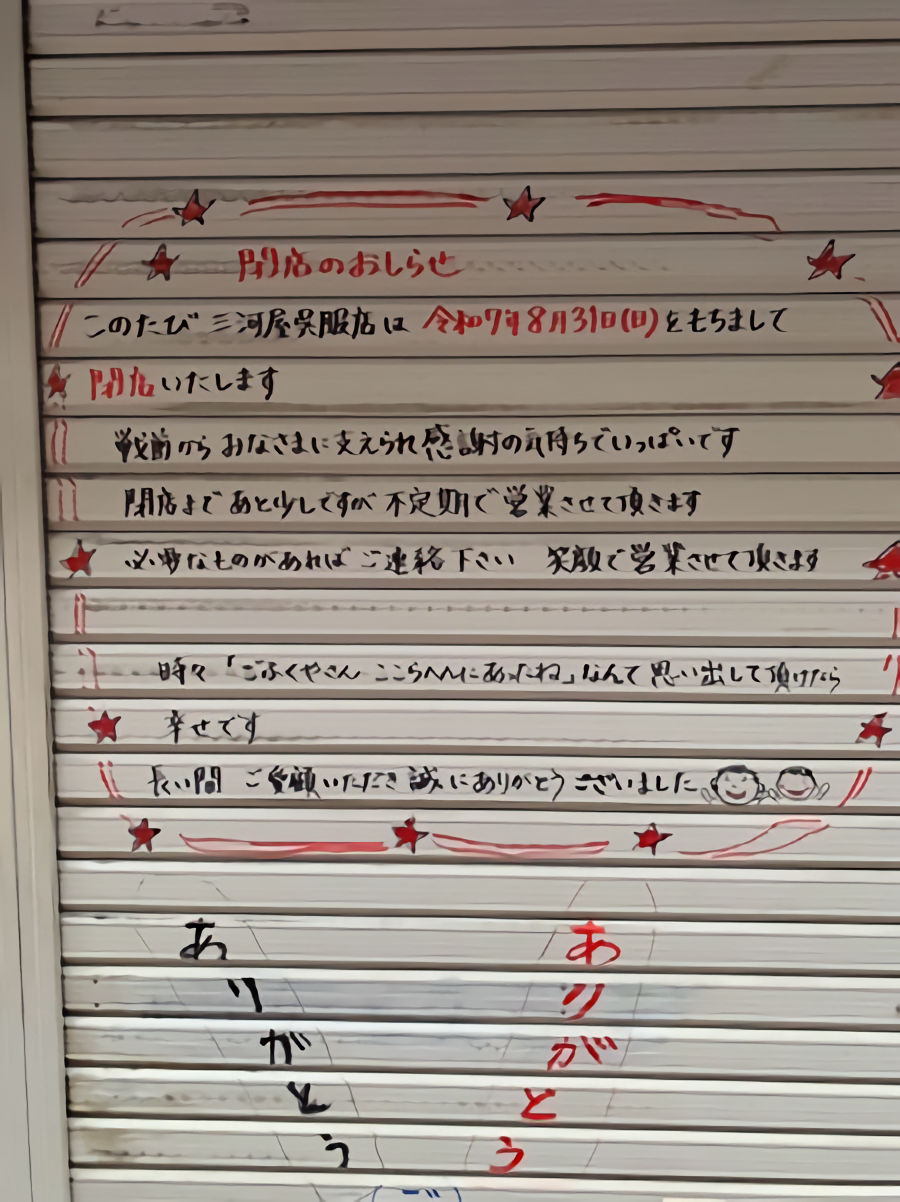 閉店のおしらせ
このたび 三河屋呉服店は 令和7年8月31日(日)をもちまして
閉店いたします
戦前から おなさまに支えられ感謝の気持ちでいっぱいです
閉店まで あと少しですが 不定期で 営業させて頂きます
必要なものがあれば ご連絡下さい 笑顔で営業させて頂きます
時々「ごふくやさん ここらへんにあったね」なんて 思い出して頂けたら
幸せです
長い間 ご愛顧いただき 誠にありがとうございました
ありがとう
ありがとう